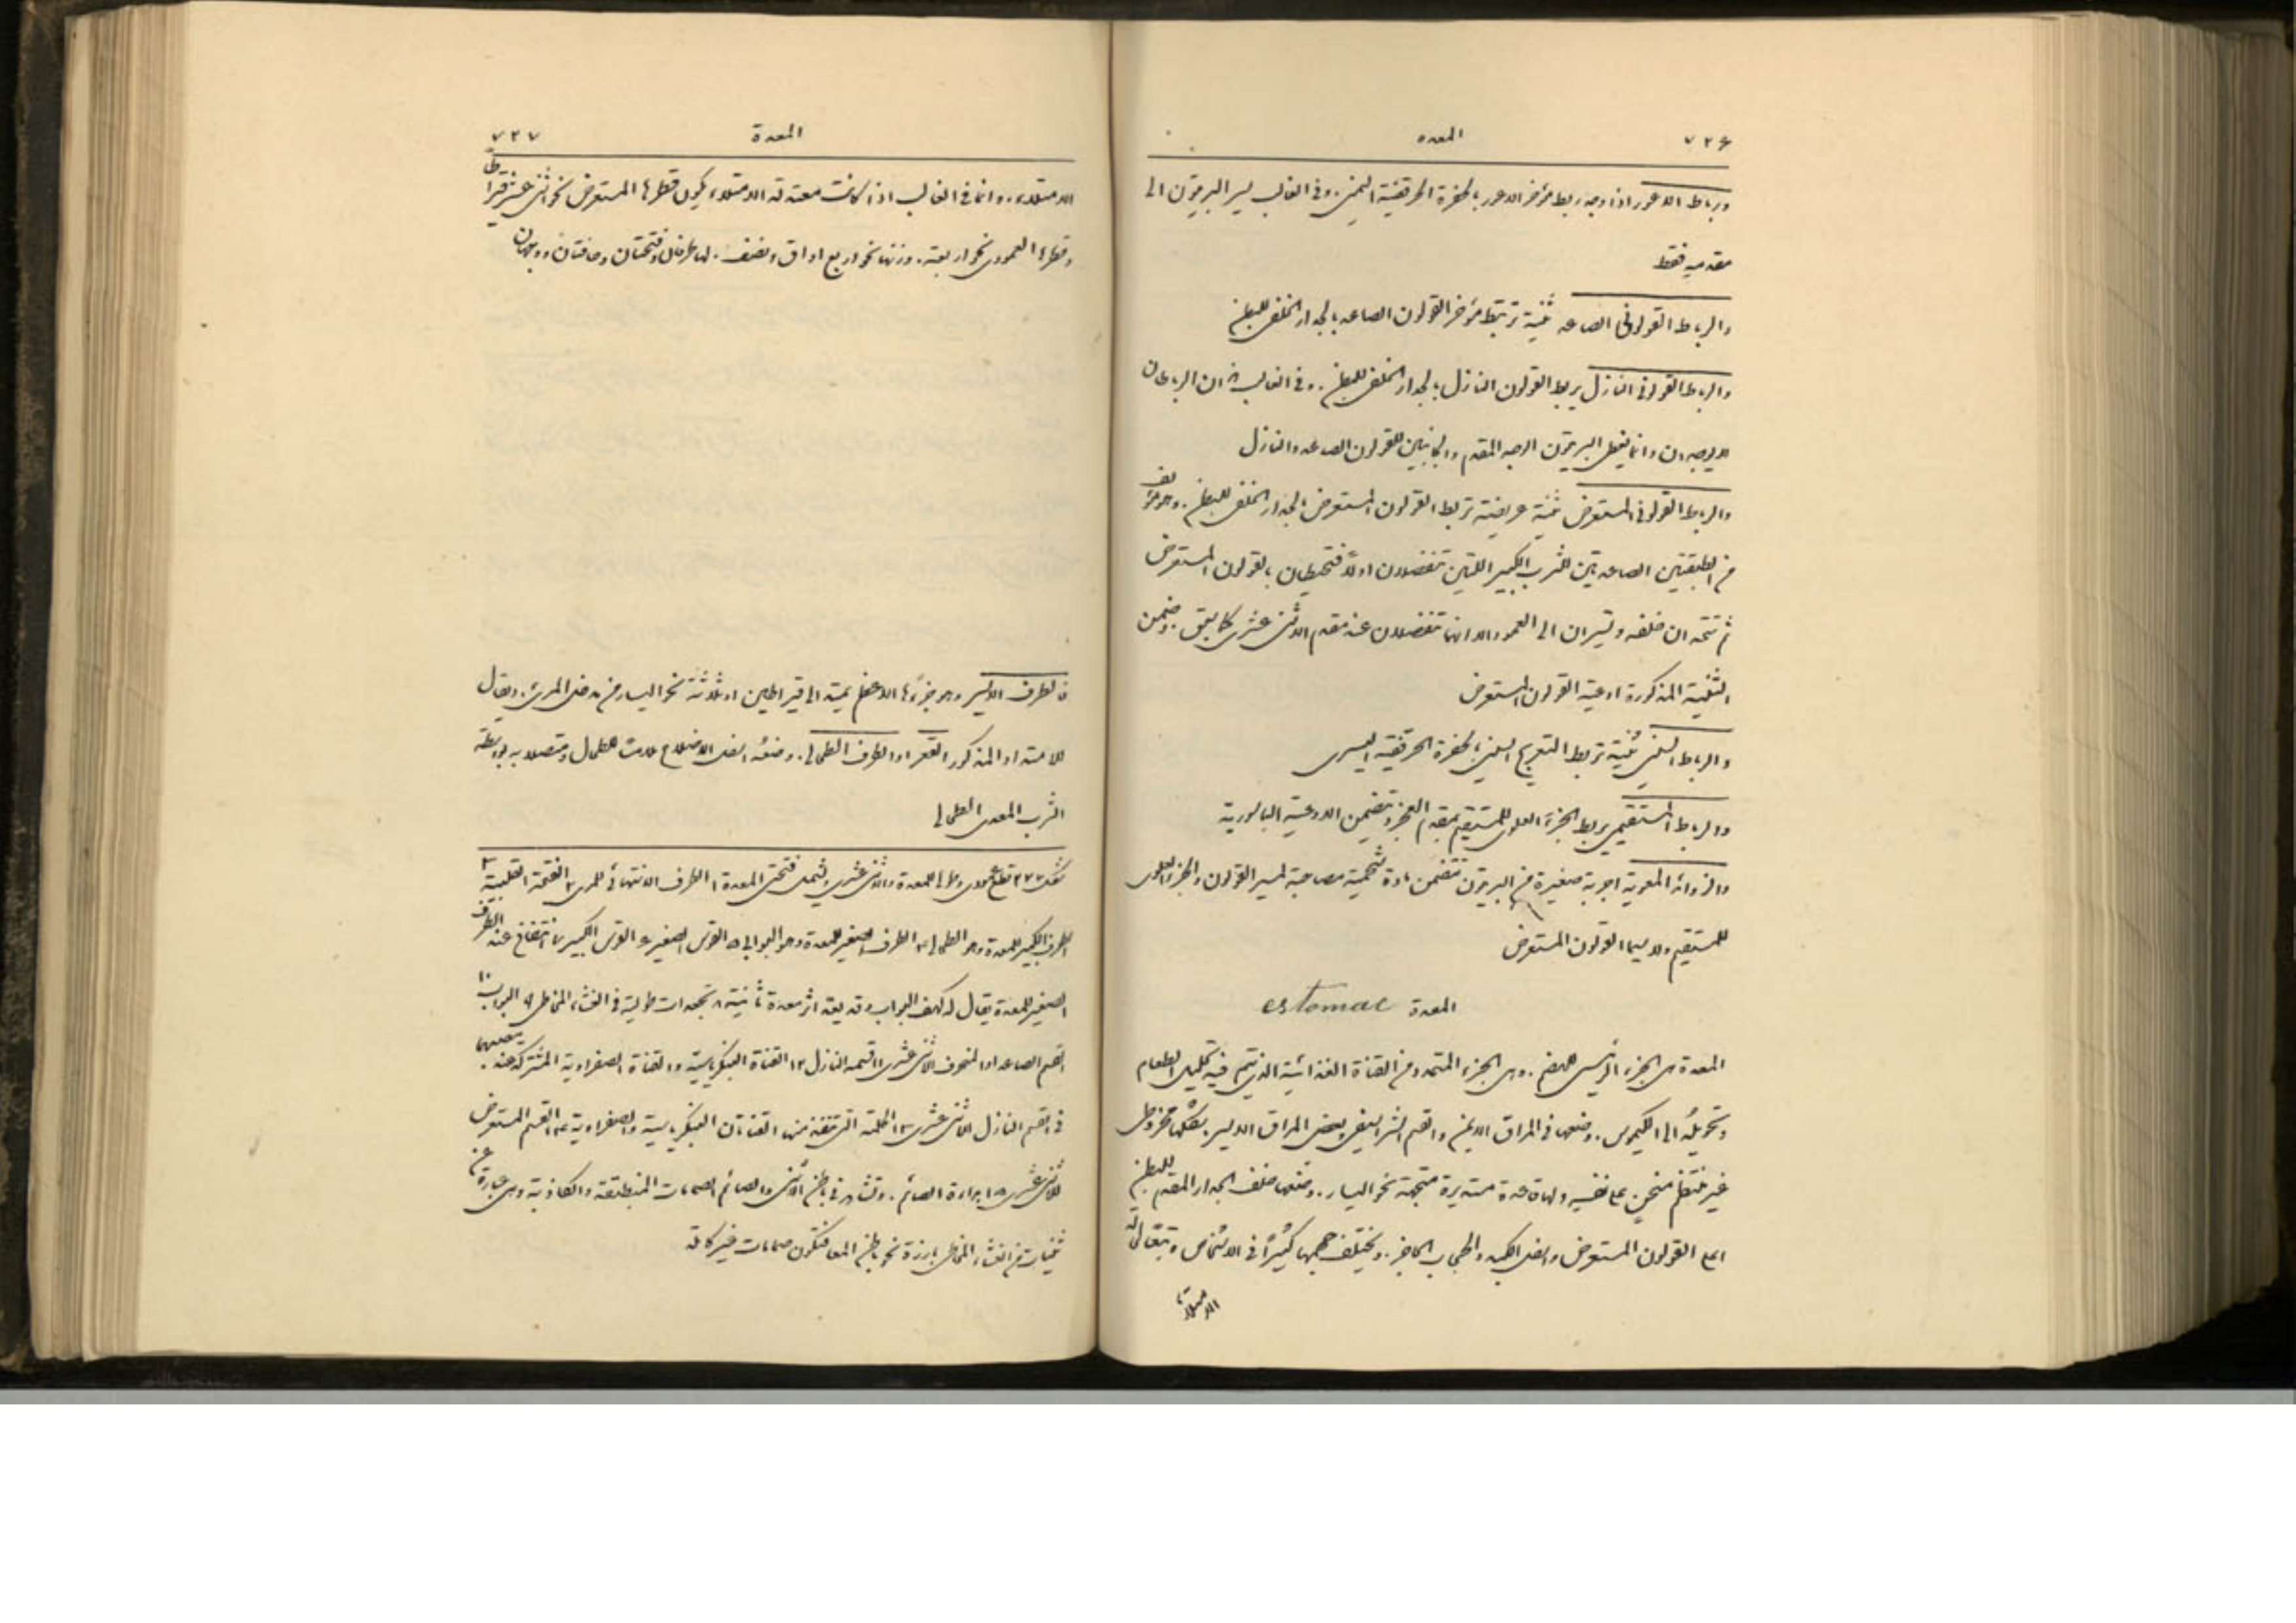 ٧٢٦ المعدة
ورباط الاعور اذا وجد ربط مؤخر الاعور بالحفرة الحرقفية اليمنى. وفي الغالب يسير البريتون الى
مقدمه فقط
والرباط القولوني الصاعد ثنية تربط مؤخر القولون الصاعد بالجدار الخلفي للبطن
والرباط القولوني النازل يربط القولون النازل بالجدار الخلفي للبطن. وفي الغالب هذان الرباطان
لا يوجدان وانما يغطي البريتون الوجه المقدم والجانبين للقولون الصاعد والنازل
والرباط القولوني المستعرض ثنية عريضة تربط القولون المستعرض بالجدار الخلفي للبطن. وهو مؤلف
من الطبقتين الصاعدتين للثرب الكبير اللتين تنفصلان اولاً فتحيطان بالقولون المستعرض
ثم تتحدان خلفه وتسيران الى العمود الا انهما تنفصلان عند مقدم الاثني عشري كما سبق. وضمن
الثنية المذكورة اوعية القولون المستعرض
والرباط السيني ثنية تربط التعريج السيني بالحفرة الحرقفية اليسرى
والرباط المستقيمي يربط الجزء العلوي للمستقيم بمقدم العجز وتضمن الاوعية الباسورية
والزوائد المعوية اجربة صغيرة من البريتون تتضمن مادة شحمية مصاحبة لمسير القولون والجزء العلوي
للمستقيم ولا سيما القولون المستعرض
المعدة estomac
المعدة هي الجزء الرئيسي للهضم. وهي الجزء المتمدد من القناة الغذائية الذي يتم فيه تحليل الطعام
وتحويله الى الكيموس. وضعها في المراق الايمن والقسم الشراسيفي وبعض المراق الايسر. شكلها مخروطي
غير منتظم منحنٍ على نفسه ولها قاعدة مستديرة متجهة نحو اليسار. وضعها خلف الجدار المقدم للبطن
اعلى القولون المستعرض واسفل الكبد والحجاب الحاجز. ويختلف حجمها كثيراً في الاشخاص وبحالة
الامتلاء
المعدة ٧٢٧
الامتلاء. وانما في الغالب اذا كانت معتدلة الامتلاء يكون قطرها المستعرض نحو اثني عشر قيراطاً
وقطرها العمودي نحو اربعة. وزنها نحو اربع اواق ونصف. لها طرفان وفتحتان وحافتان ووجهان
فالطرف الايسر وهو جزءها الاعظم يمتد الى قيراطين او ثلاثة نحو اليسار من مدخل المريء. ويقال
للامتداد المذكور القعر او الطرف الطحالي. وضعه اسفل الاضلاع ملامساً للطحال ومتصلاً به بواسطة
الثرب المعدي الطحالي
شكل ٢٣٢ قطع عمودي وطولي للمعدة والاثني عشري يشمل فتحتي المعدة ١ الطرف الانتهائي للمريء ٢ الفتحة القلبية ٣
الطرف الكبير للمعدة وهو الطحالي ٤ الطرف الصغير للمعدة وهو البوابي ٥ القوس الصغير ٦ القوس الكبير ٧ انتفاخ عند الطرف
الصغير للمعدة يقال له كهف البواب وقد يعد اثر معدة ثانية ٨ تجعدات طولية في الغشاء المخاطي ٩ البواب ١٠
القسم الصاعد او المنحرف للاثني عشري ١١ قسمه النازل ١٢ القناة البنكرياسية والقناة الصفراوية المشتركة عند مصبهما
في القسم النازل للاثني عشري ١٣ الحلمة التي تنفذ منها القناتان البنكرياسية والصفراوية ١٤ القسم المستعرض
للاثني عشري ١٥ ابتداءة الصائم. وتشاهد في باطن الاثني والصائم الصمامات المنطبقة والكاذبة وهي عبارة عن
ثنيات من الغشاء المخاطي بارزة نحو باطن المعا فتكون صمامات غير كاملة